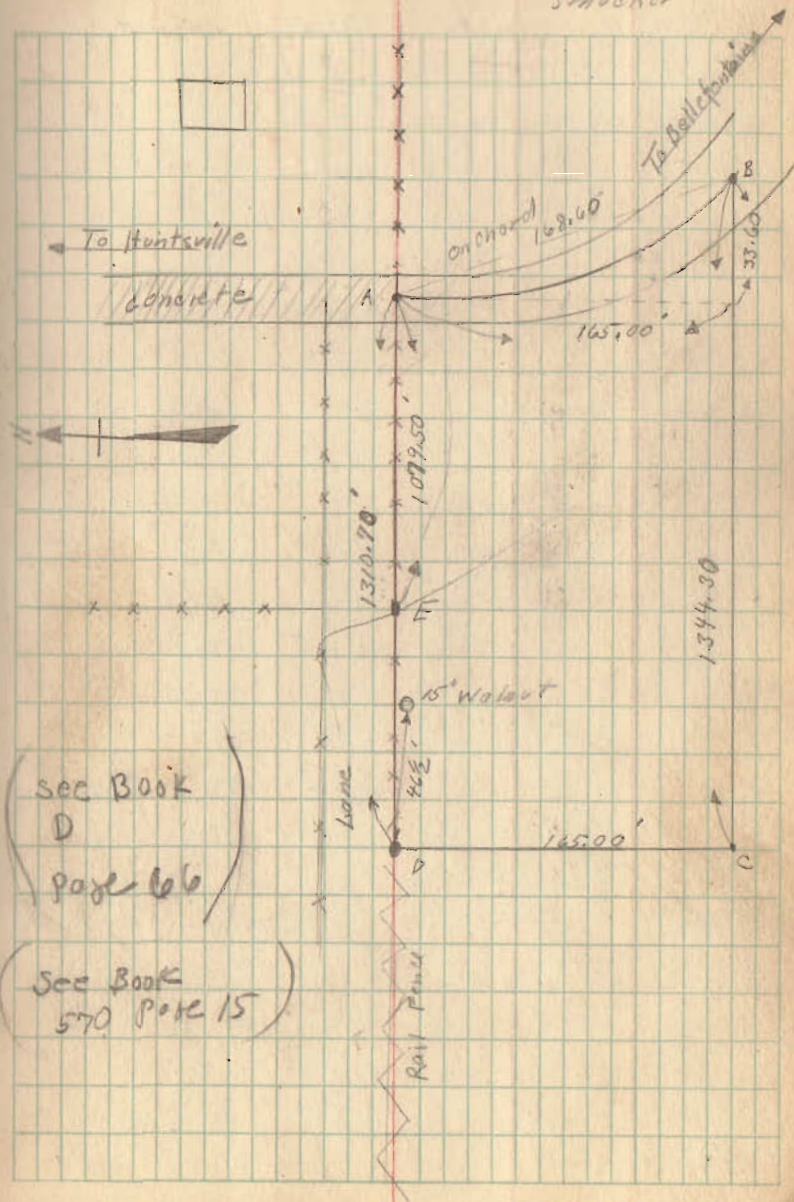 To Bellefontaine
B
orchard 168.60'
33.60
To Huntsville
concrete
A
165.00'
N
1079.50'
1310.70'
E
1344.30
15" Walnut
Lane
46½'
165.00'
D
C
see Book
D
page 66
see Book
570 page 15
Rail Fence